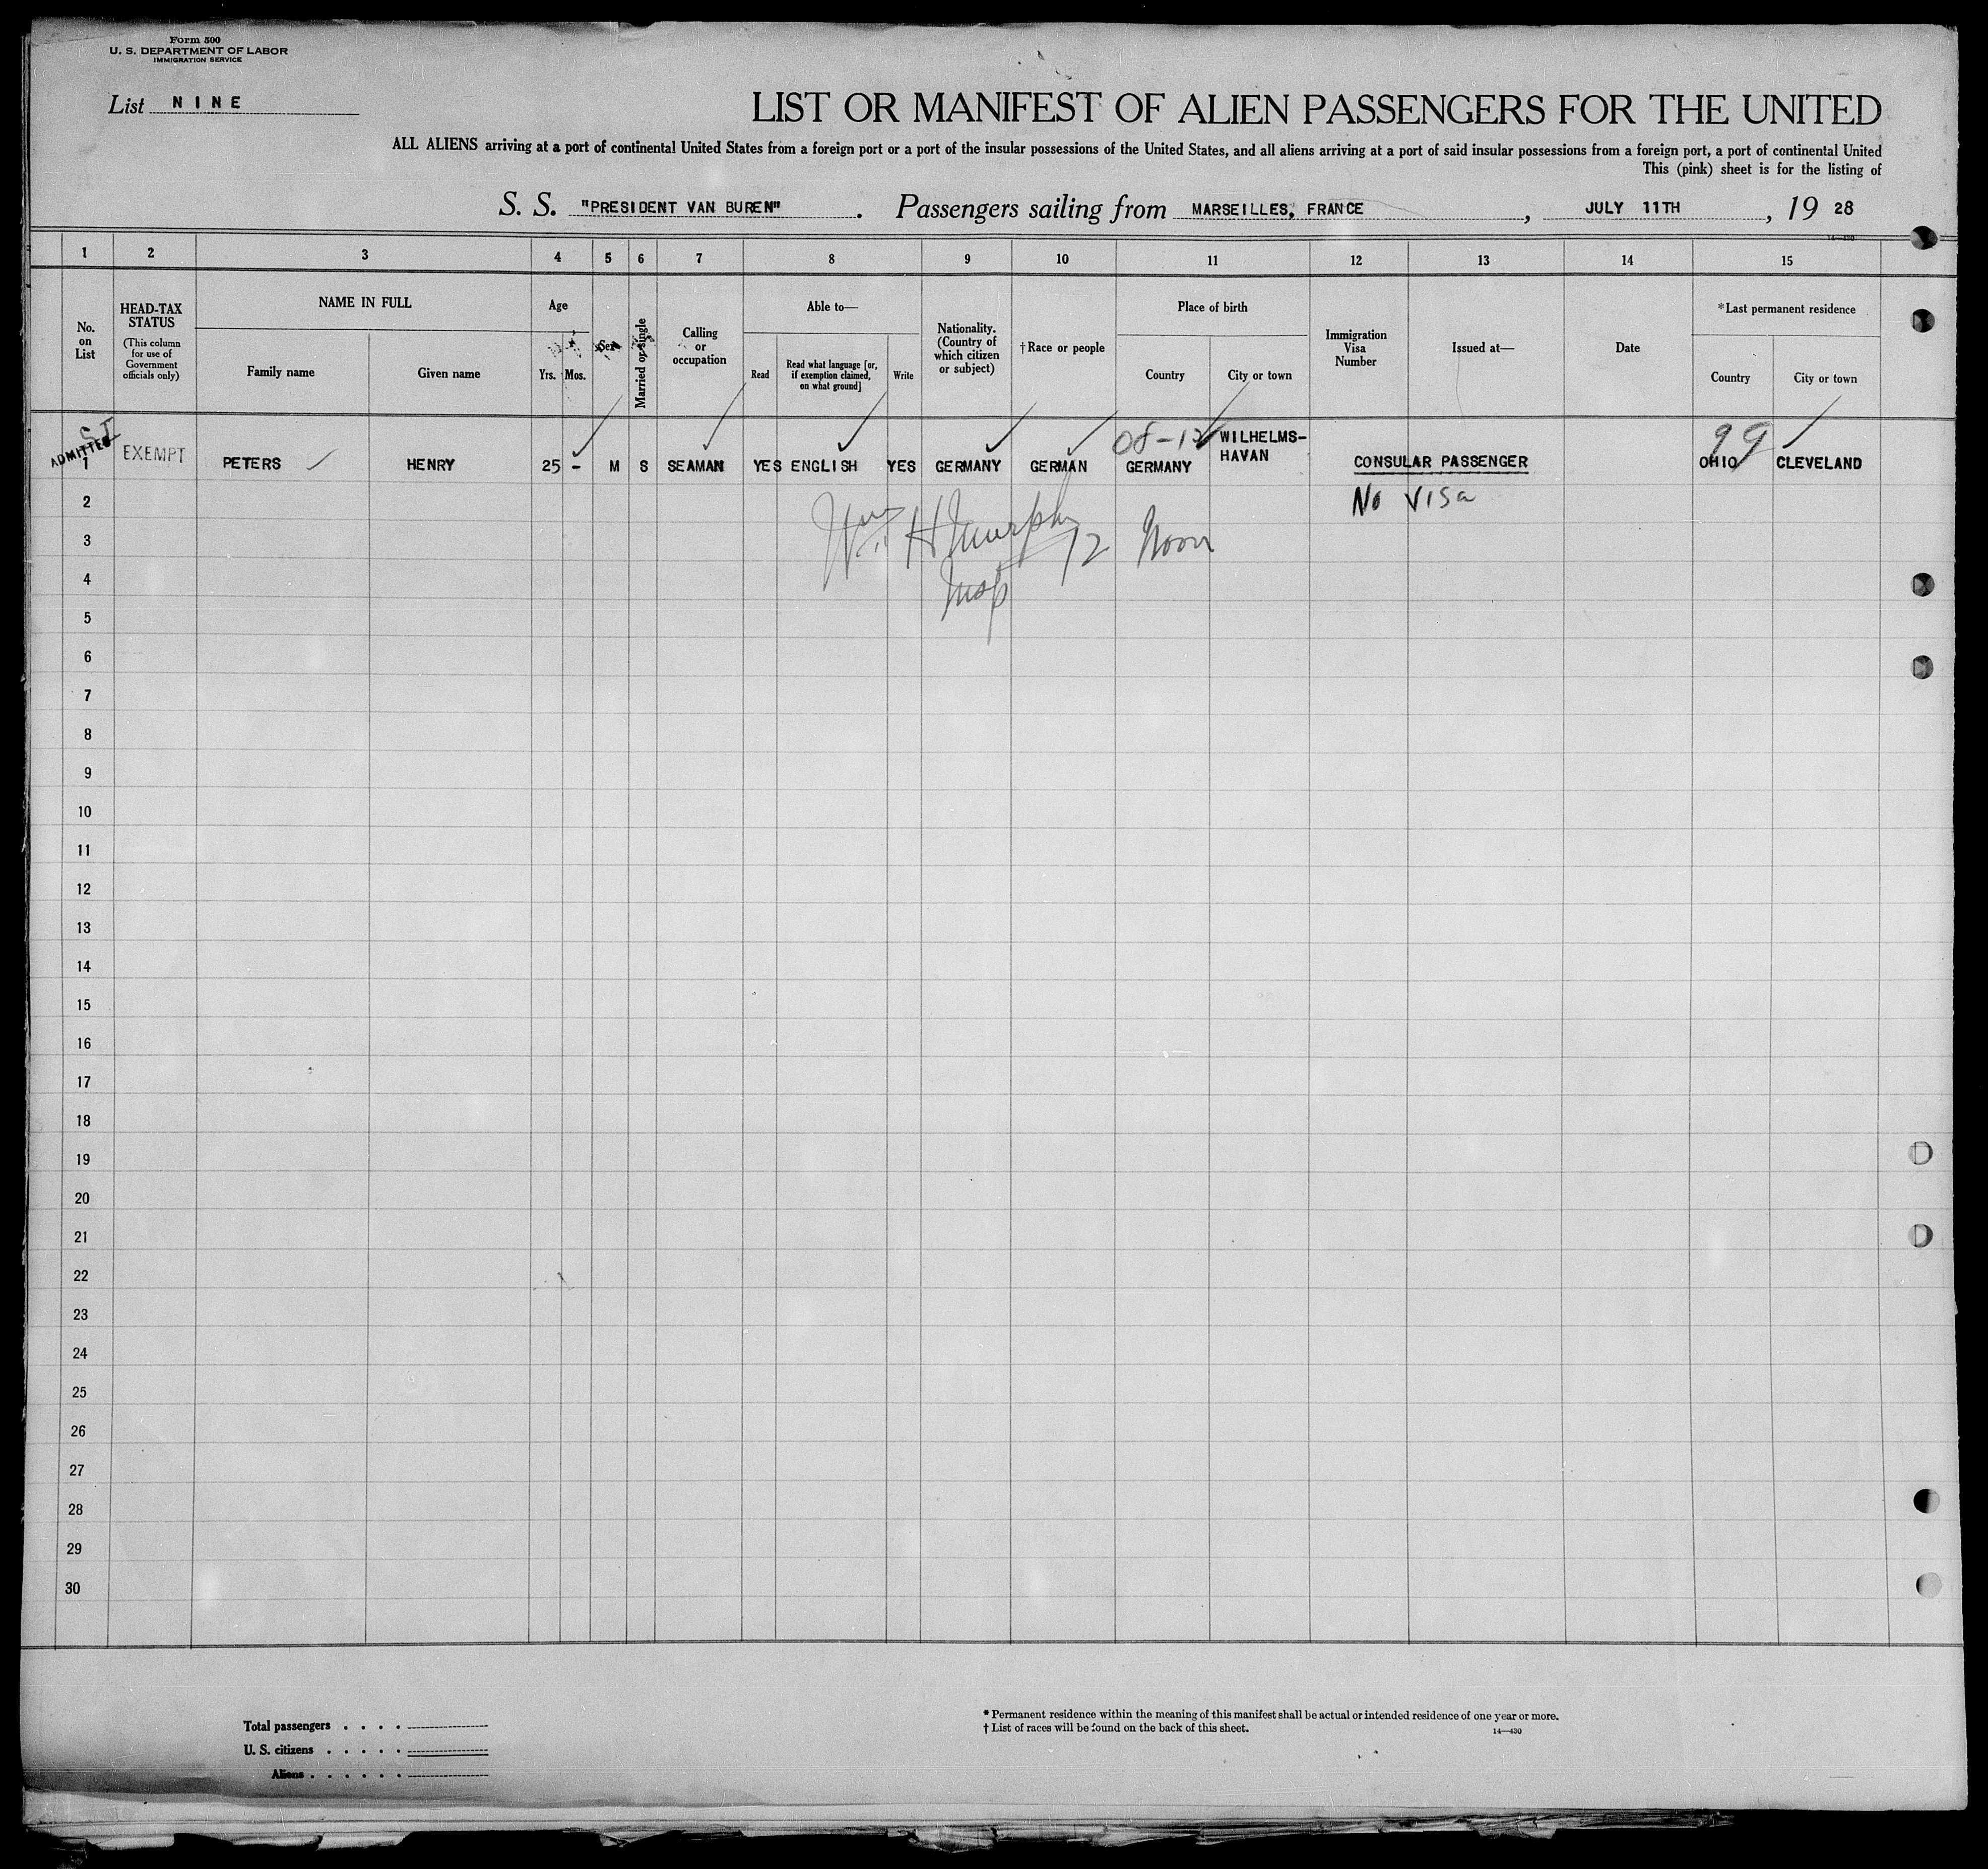 Form 500
U. S. DEPARTMENT OF LABOR
IMMIGRATION SERVICE
List NINE
LIST OR MANIFEST OF ALIEN PASSENGERS FOR THE UNITED
ALL ALIENS arriving at a port of continental United States from a foreign port or a port of the insular possessions of the United States, and all aliens arriving at a port of said insular possessions from a foreign port, a port of continental United
This (pink) sheet is for the listing of
S. S. "PRESIDENT VAN BUREN" . Passengers sailing from MARSEILLES, FRANCE , JULY 11TH , 19 28
14—430
1 2 3 4 5 6 7 8 9 10 11 12 13 14 15
No. on List
HEAD-TAX STATUS
(This column for use of Government officials only)
NAME IN FULL
Family name
Given name
Age
Yrs. Mos.
Sex
Married or single
Calling or occupation
Able to—
Read
Read what language [or, if exemption claimed, on what ground]
Write
Nationality. (Country of which citizen or subject)
†Race or people
Place of birth
Country
City or town
Immigration Visa Number
Issued at—
Date
*Last permanent residence
Country
City or town
SI
ADMITTED
08-12
99
1 EXEMPT PETERS HENRY 25 - M S SEAMAN YES ENGLISH YES GERMANY GERMAN GERMANY WILHELMS-HAVAN CONSULAR PASSENGER OHIO CLEVELAND
No Visa
Wm H Murphy 12 Noon
Insp
2
3
4
5
6
7
8
9
10
11
12
13
14
15
16
17
18
19
20
21
22
23
24
25
26
27
28
29
30
Total passengers . . . .
U. S. citizens . . . . .
Aliens . . . . . .
* Permanent residence within the meaning of this manifest shall be actual or intended residence of one year or more.
† List of races will be found on the back of this sheet.
14—430